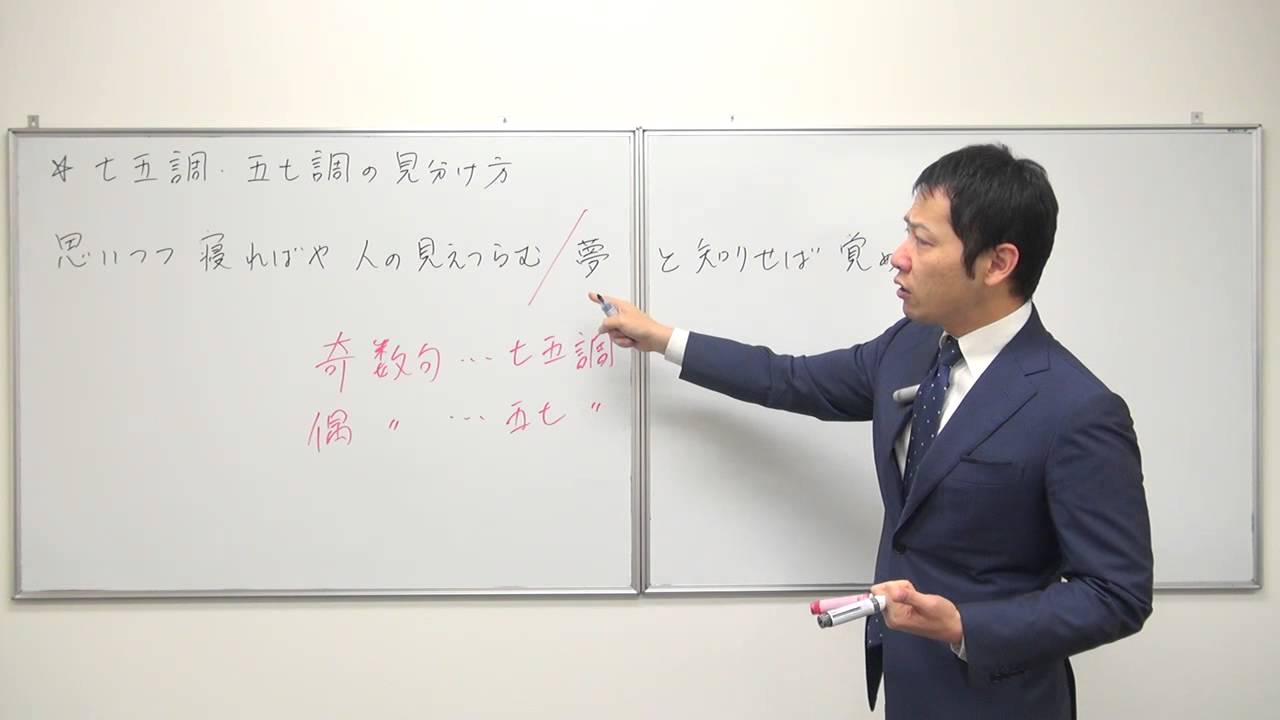 ☆ 七五調・五七調の見分け方
思いつつ 寝ればや 人の見えつらむ/夢と知りせば 覚め
奇数句…七五調
偶〃…五七〃